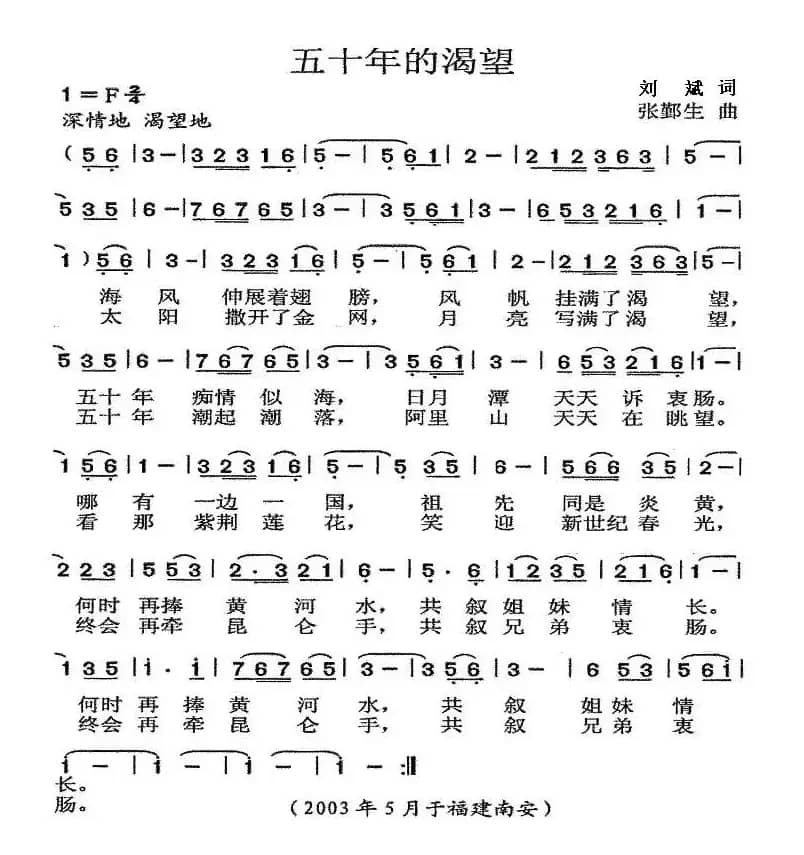 五十年的渴望
1=F 2/4
刘 斌 词
深情地 渴望地
张鄞生 曲
( 5 6 | 3 - | 3 2 3 1 6 | 5 - | 5 5 6 1 | 2 - | 2 1 2 3 6 3 | 5 - |
5 3 5 | 6 - | 7 6 7 6 5 | 3 - | 3 5 6 1 | 3 - | 6 5 3 2 1 6 | 1 - |
1 ) 5 6 | 3 - | 3 2 3 1 6 | 5 - | 5 5 6 1 | 2 - | 2 1 2 3 6 3 | 5 - |
海 风 伸展着翅 膀， 风 帆 挂满了渴 望，
太 阳 撒开了金 网， 月 亮 写满了渴 望，
5 3 5 | 6 - | 7 6 7 6 5 | 3 - | 3 5 6 1 | 3 - | 6 5 3 2 1 6 | 1 - |
五十年 痴情 似 海， 日月 潭 天天 诉 衷肠。
五十年 潮起 潮 落， 阿里 山 天天 在 眺望。
1 5 6 | 1 - | 3 2 3 1 6 | 5 - | 5 5 3 5 | 6 - | 5 6 6 3 5 | 2 - |
哪 有 一边 一 国， 祖 先 同是 炎 黄，
看 那 紫荆 莲 花， 笑 迎 新世纪春 光，
2 2 3 | 5 5 3 | 2 · 3 2 1 | 6 - | 5 · 6 | 1 2 3 5 | 2 1 6 | 1 - |
何时 再捧 黄 河 水， 共 叙 姐 妹 情 长。
终会 再牵 昆 仑 手， 共 叙 兄 弟 衷 肠。
1 3 5 | i · i | 7 6 7 6 5 | 3 - | 3 5 6 | 3 - | 6 5 3 | 5 6 i |
何时 再 捧 黄 河 水， 共 叙 姐妹 情
终会 再 牵 昆 仑 手， 共 叙 兄弟 衷
i - | i - | i - | i - :||
长。
肠。
（2003年5月于福建南安）